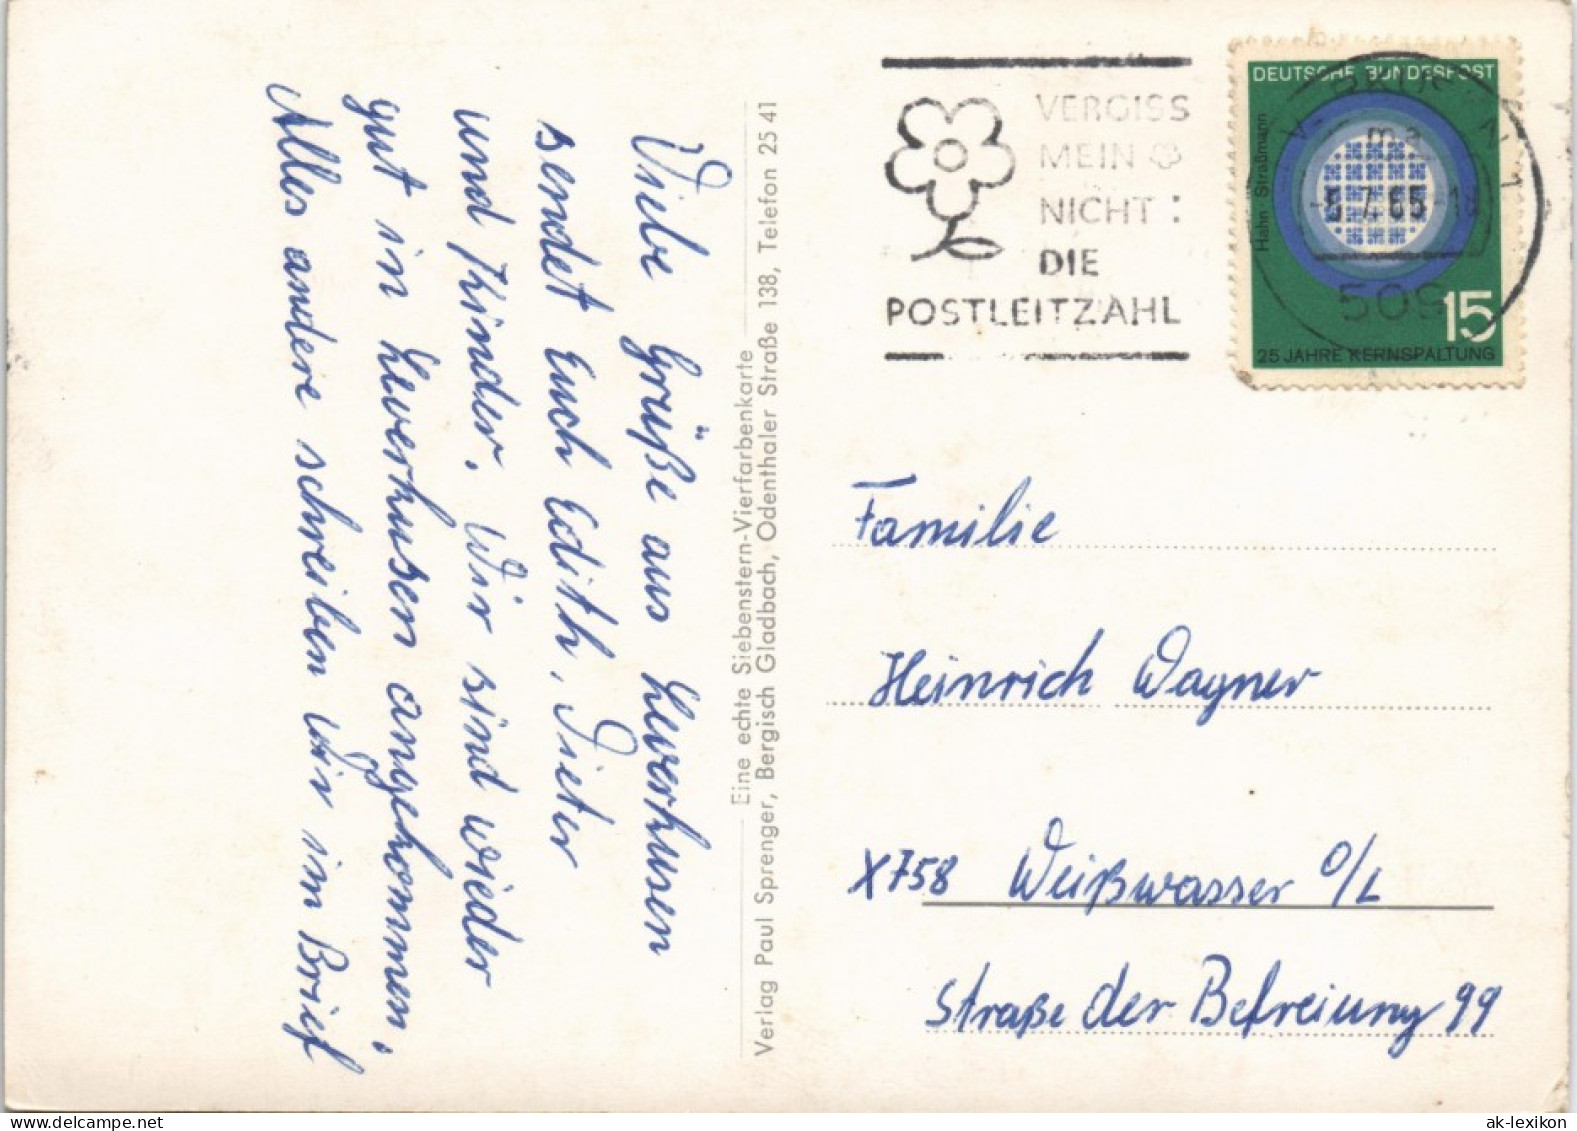 Viele Grüße aus Leverkusen
sendet Euch Edith, Dieter
und Kinder. Wir sind wieder
gut in Leverkusen angekommen.
Alles andere schreiben wir im Brief
Eine echte Siebenstern-Vierfarbenkarte
Verlag Paul Sprenger, Bergisch Gladbach, Odenthaler Straße 138, Telefon 25 41
VERGISS
MEIN
NICHT:
DIE
POSTLEITZAHL
DEUTSCHE BUNDESPOST
Hahn Straßmann
15
25 JAHRE KERNSPALTUNG
7.65
509
Familie
Heinrich Wagner
X758 Weißwasser O/L
Straße der Befreiung 99
ak-lexikon